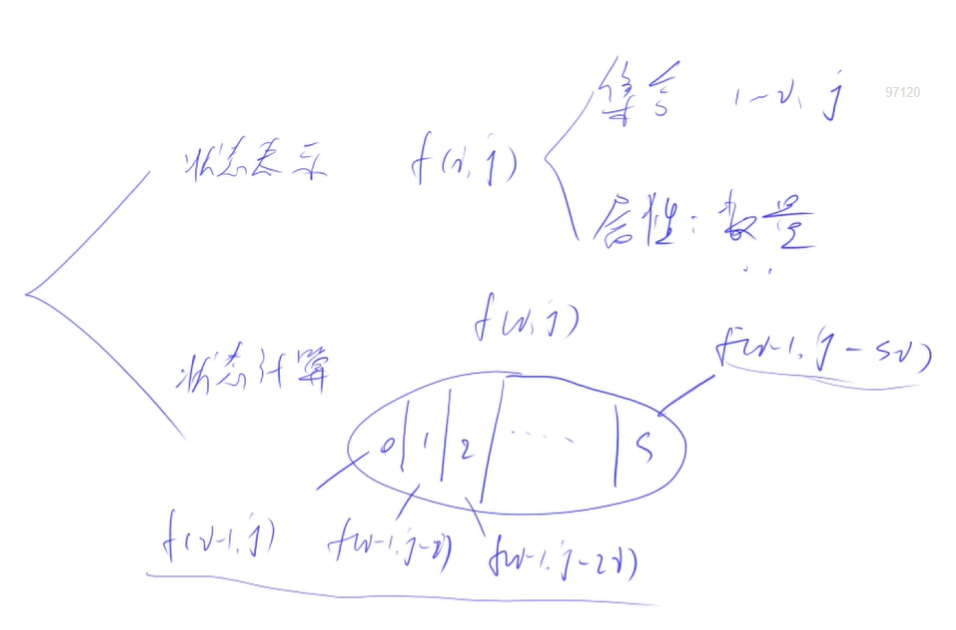 集合 1~i, j
97120
状态表示 f(i, j)
属性: 数量
f(i, j)
f(i-1, j-si)
状态计算
0 1 2 ···· s
f(i-1, j) f(i-1, j-i) f(i-1, j-2i)